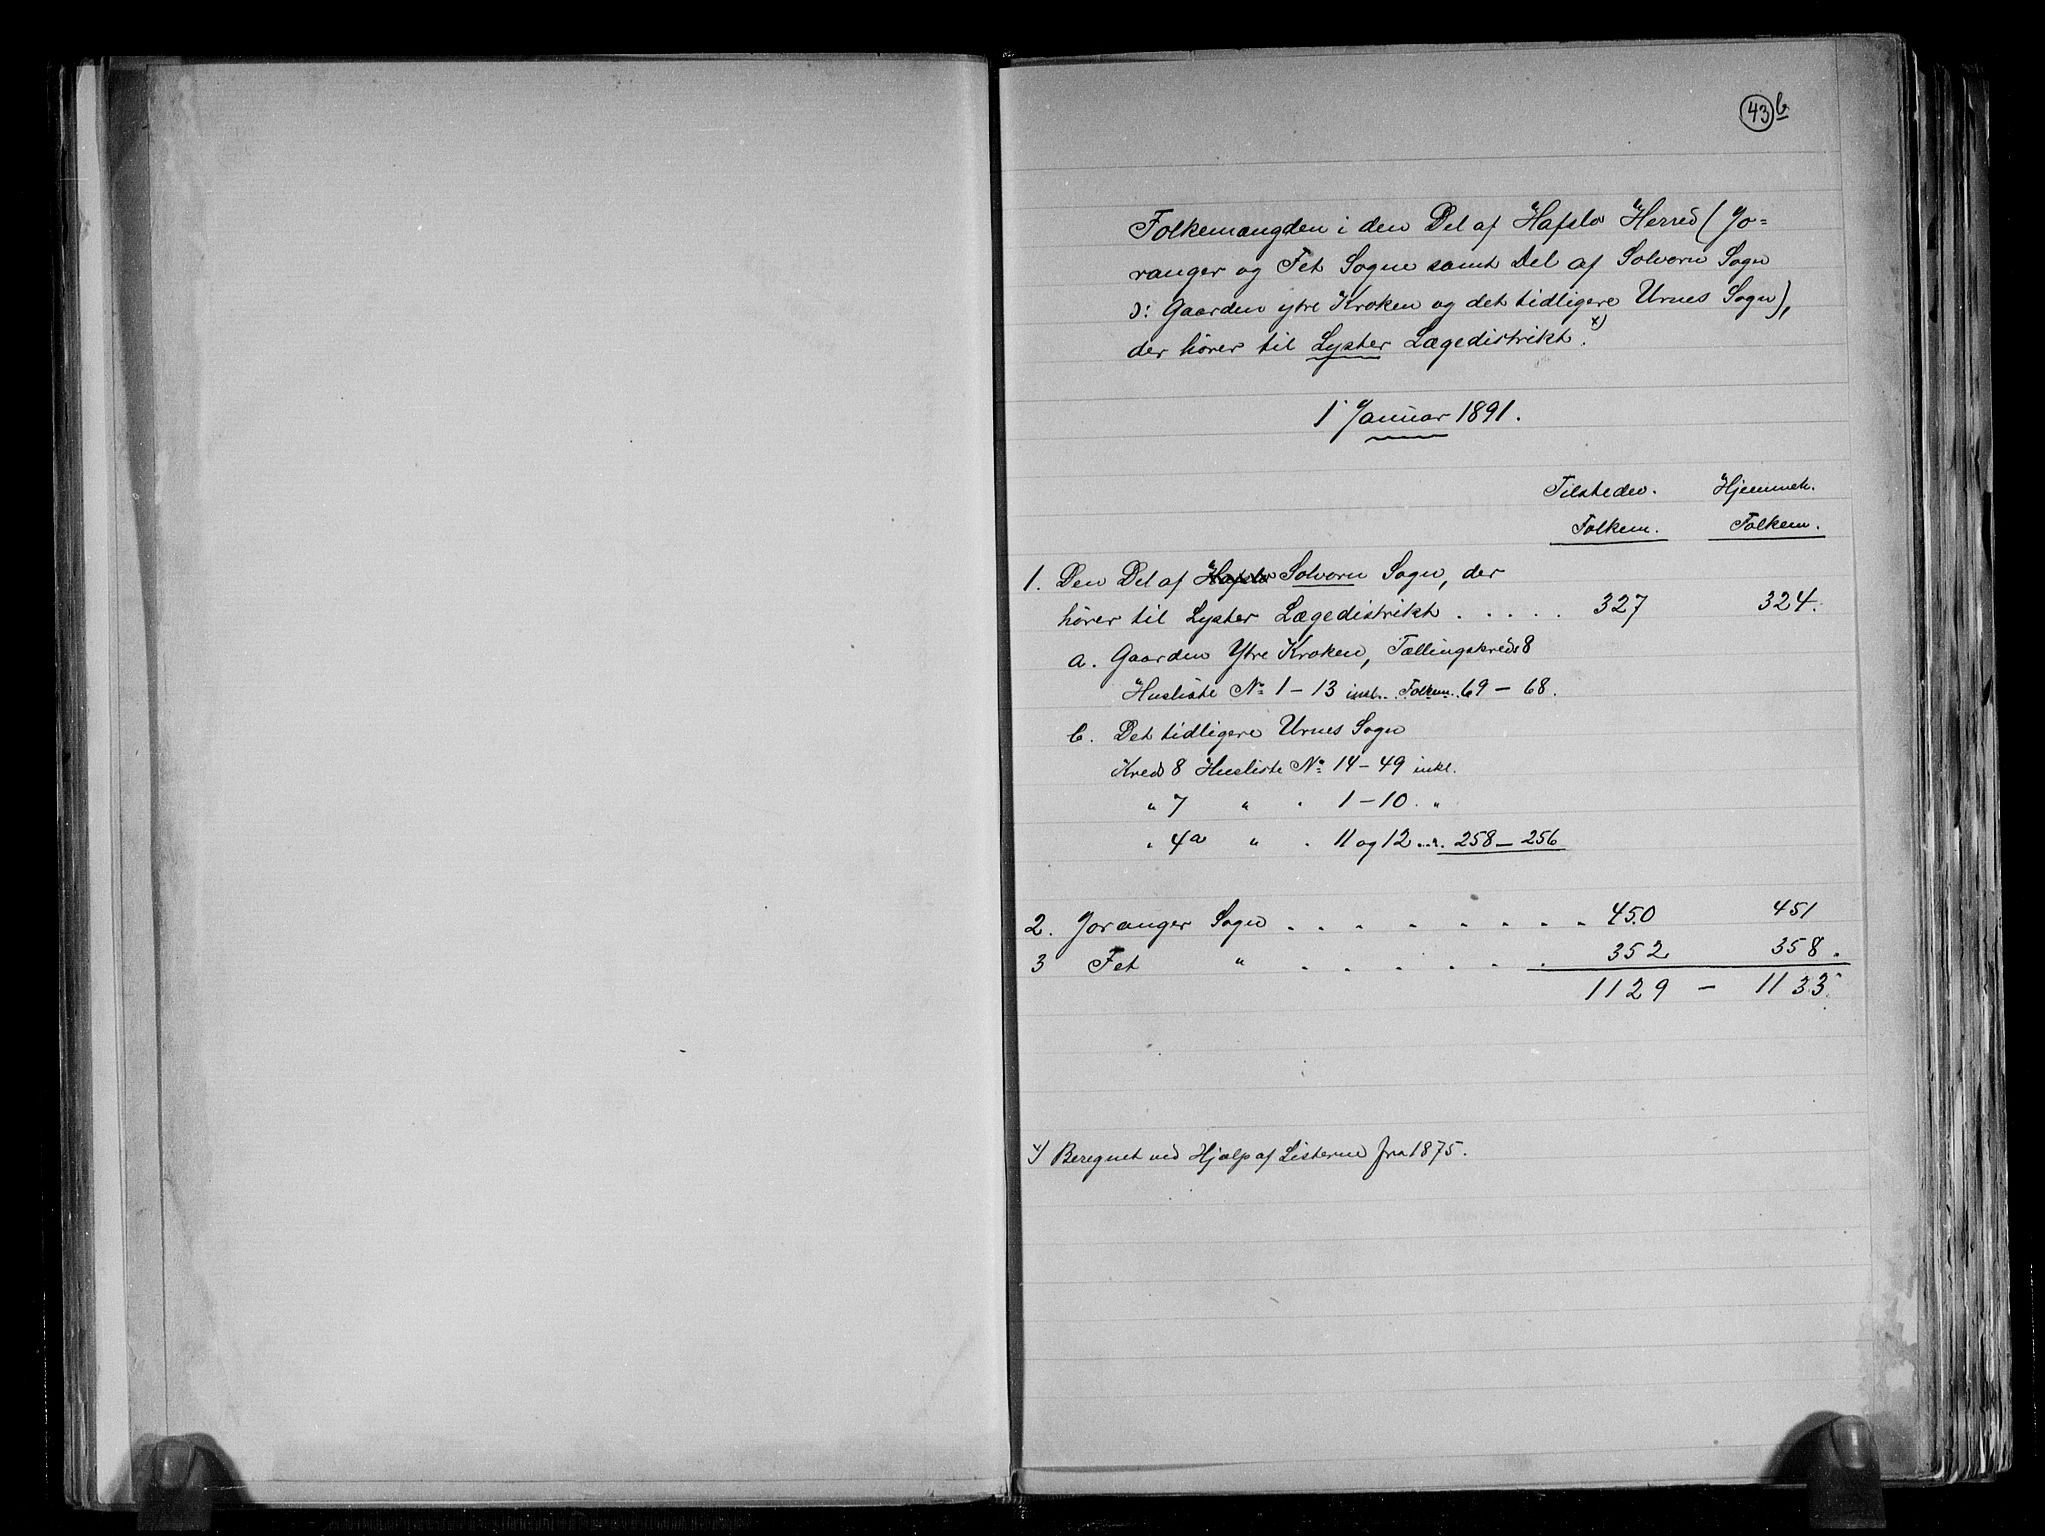 43 b
Folkemængden i den Del af Hafslo Herred (Jo=
ranger og Fet Sogne samt Del af Solvorn Sogn
ɔ: Gaarden ytre Kroken og det tidligere Urnes Sogn),
der hører til Lyster Lægedistrikt. x)
1 Januar 1891.
Tilstedev. Hjemmeh.
Folkem. Folkem.
1. Den Del af Hafslo Solvorn Sogn, der
hører til Lyster Lægedistrikt . . . . . 327 324.
a. Gaarden Ytre Kroken, Tællingskreds 8
Husliste No 1 – 13 inkl. Folkem. 69 – 68.
b. Det tidligere Urnes Sogn
Kreds 8 Husliste No 14 – 49 inkl.
" 7 " " 1 – 10 . "
" 4a " " 11 og 12 . . . 258 – 256
2. Joranger Sogn . . . . . . . . 450 451
3 Fet " . . . . . . 352 358.
1129 – 1133.
x) Beregnet ved Hjælp af Listerne fra 1875.